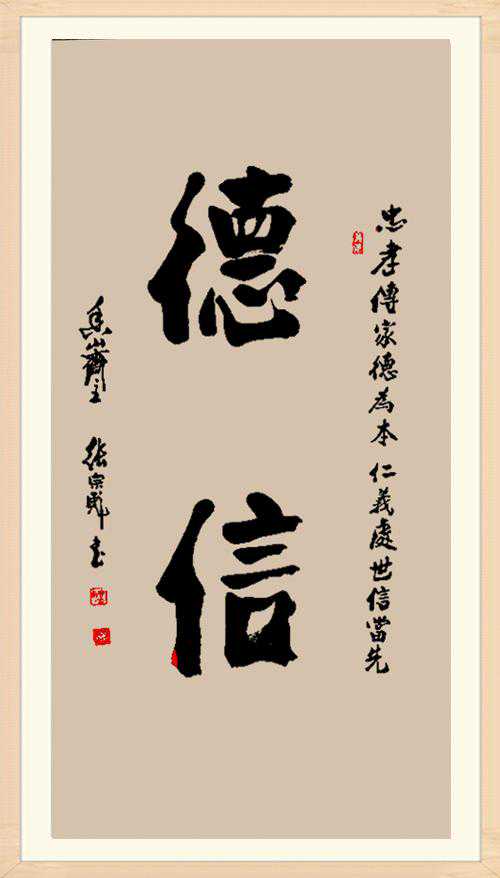 忠孝傳家德為本 仁義處世信當先
德信
香山齋主 張宗彪 書